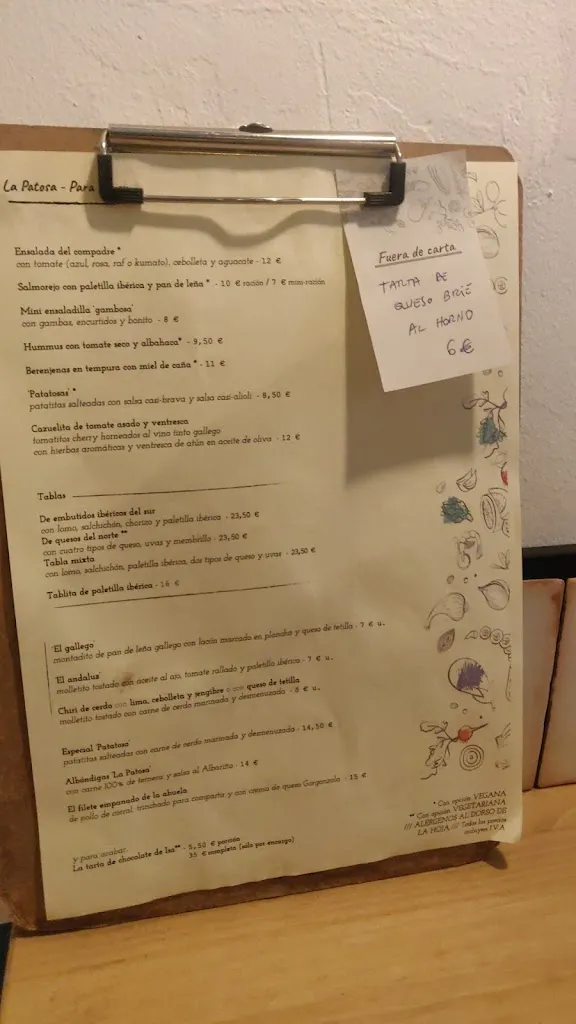 La Patosa - Para
Fuera de carta
TARTA DE
QUESO BRIE
AL HORNO
6 €
Ensalada del compadre *
con tomate (azul, rosa, raf o kumato), cebolleta y aguacate - 12 €
Salmorejo con paletilla ibérica y pan de leña * - 10 € ración / 7 € mini-ración
Mini ensaladilla 'gambosa'
con gambas, encurtidos y bonito - 8 €
Hummus con tomate seco y albahaca* - 9,50 €
Berenjenas en tempura con miel de caña * - 11 €
'Patatosas' *
patatitas salteadas con salsa casi-brava y salsa casi-alioli - 8,50 €
Cazuelita de tomate asado y ventresca
tomatitos cherry horneados al vino tinto gallego
con hierbas aromáticas y ventresca de atún en aceite de oliva - 12 €
Tablas
De embutidos ibéricos del sur
con lomo, salchichón, chorizo y paletilla ibérica - 23,50 €
De quesos del norte **
con cuatro tipos de queso, uvas y membrillo - 23,50 €
Tabla mixta
con lomo, salchichón, paletilla ibérica, dos tipos de queso y uvas - 23,50 €
Tablita de paletilla ibérica - 16 €
'El gallego'
montadito de pan de leña gallego con lacón marcado en plancha y queso de tetilla - 7 € u.
'El andaluz'
molletito tostado con aceite al ajo, tomate rallado y paletilla ibérica - 7 € u.
Chiri de cerdo con lima, cebolleta y jengibre o con queso de tetilla
molletito tostado con carne de cerdo marinada y desmenuzada - 8 € u.
Especial 'Patatosa'
patatitas salteadas con carne de cerdo marinada y desmenuzada - 14,50 €
Albóndigas 'La Patosa'
con carne 100% de ternera y salsa al Albariño - 14 €
El filete empanado de la abuela
de pollo de corral, trinchado para compartir y con crema de queso Gorgonzola - 15 €
y para acabar...
La tarta de chocolate de Isa** - 5,50 € porción
35 € completa (sólo por encargo)
* Con opción VEGANA
** Con opción VEGETARIANA
/// ALÉRGENOS AL DORSO DE
LA HOJA /// Todos los precios
incluyen I.V.A